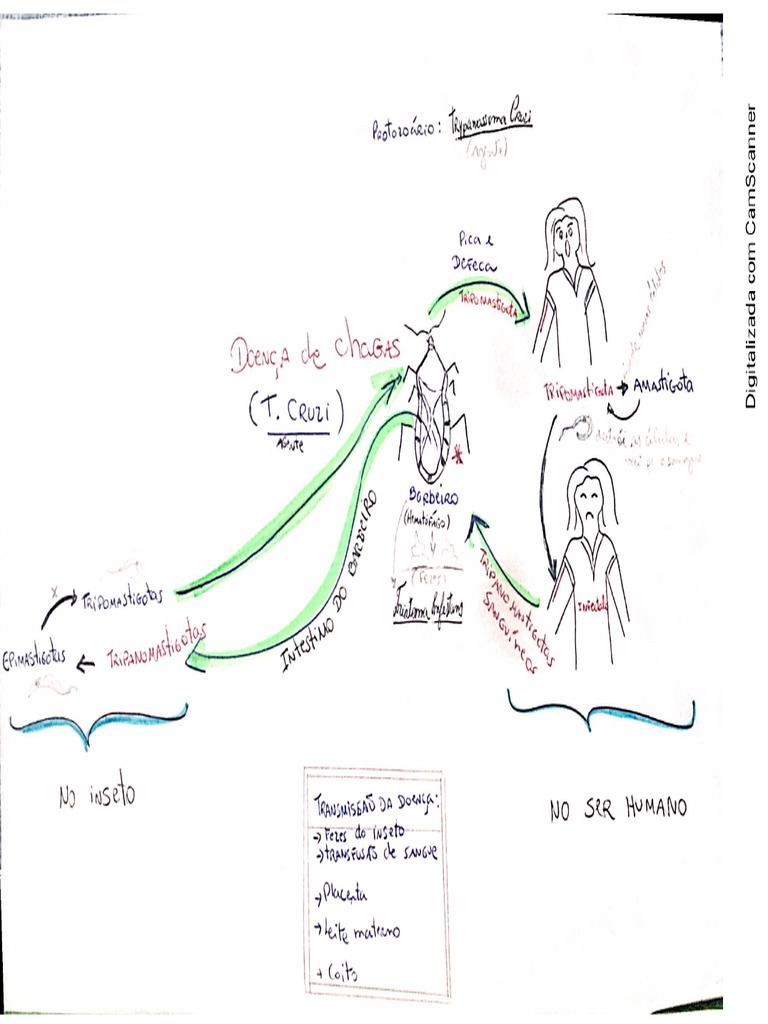 Protozoário: Trypanosoma Cruzi
(agente)
Pica e
Defeca
Tripomastigota
Doença de Chagas
(T. Cruzi)
Agente
Tripomastigota → Amastigota
Barbeiro
(Hematófago)
(Fezes)
Triatoma Infestans
Intestino do Barbeiro
Tripanomastigotas
Sanguíneas
Infectado
Tripomastigotas
Epimastigotas ← Tripanomastigotas
No inseto
No ser humano
Transmissão da doença:
→ Fezes do inseto
→ Transfusão de sangue
→ Placenta
→ Leite materno
→ Coito
Digitalizada com CamScanner